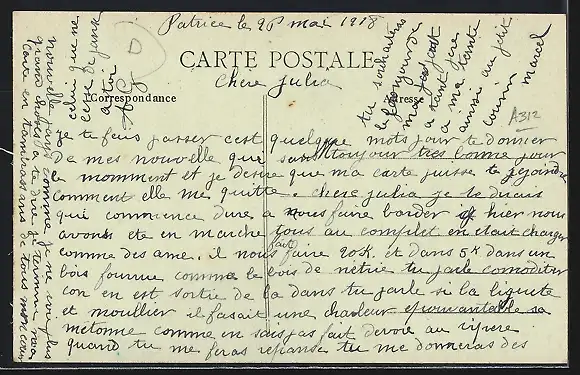 Patrice le 28 mai 1918
CARTE POSTALE
Chere Julia
Correspondance
Adresse
je te fais passer cest quelque mots pour te donner
de mes nouvelle qui sont toujour tres bonne pour
le momment et je desire que ma carte puisse te rejoindre
comment elle me quitte. chere julia je te dirais
qui commence dure a nous faire barder hier nous
avons ete en marche tous au complet en etait charger
comme des ame. il nous fait faire 20k. et dans 5k dans un
bois fourrue comme le bois de tu parle comoditer
con en est sortie de la dans tu parle si la liquete
et moullier il fasait une chaleur epouvantable sa
métonne comme en sais pas fait devore au vipere
quand tu me feras reponse tu me donneras des
nouvelle du pays comme je ne voi plus
grand choses a te dire je termine ma
carte en tambrassans de tous mon coeur
celui que ne
cesse de pansé
a toi
tu souhaiteras
le bonjour de
ma part
a tant pere
a ma tante
ainsi au petit
cousin
marcel
A312